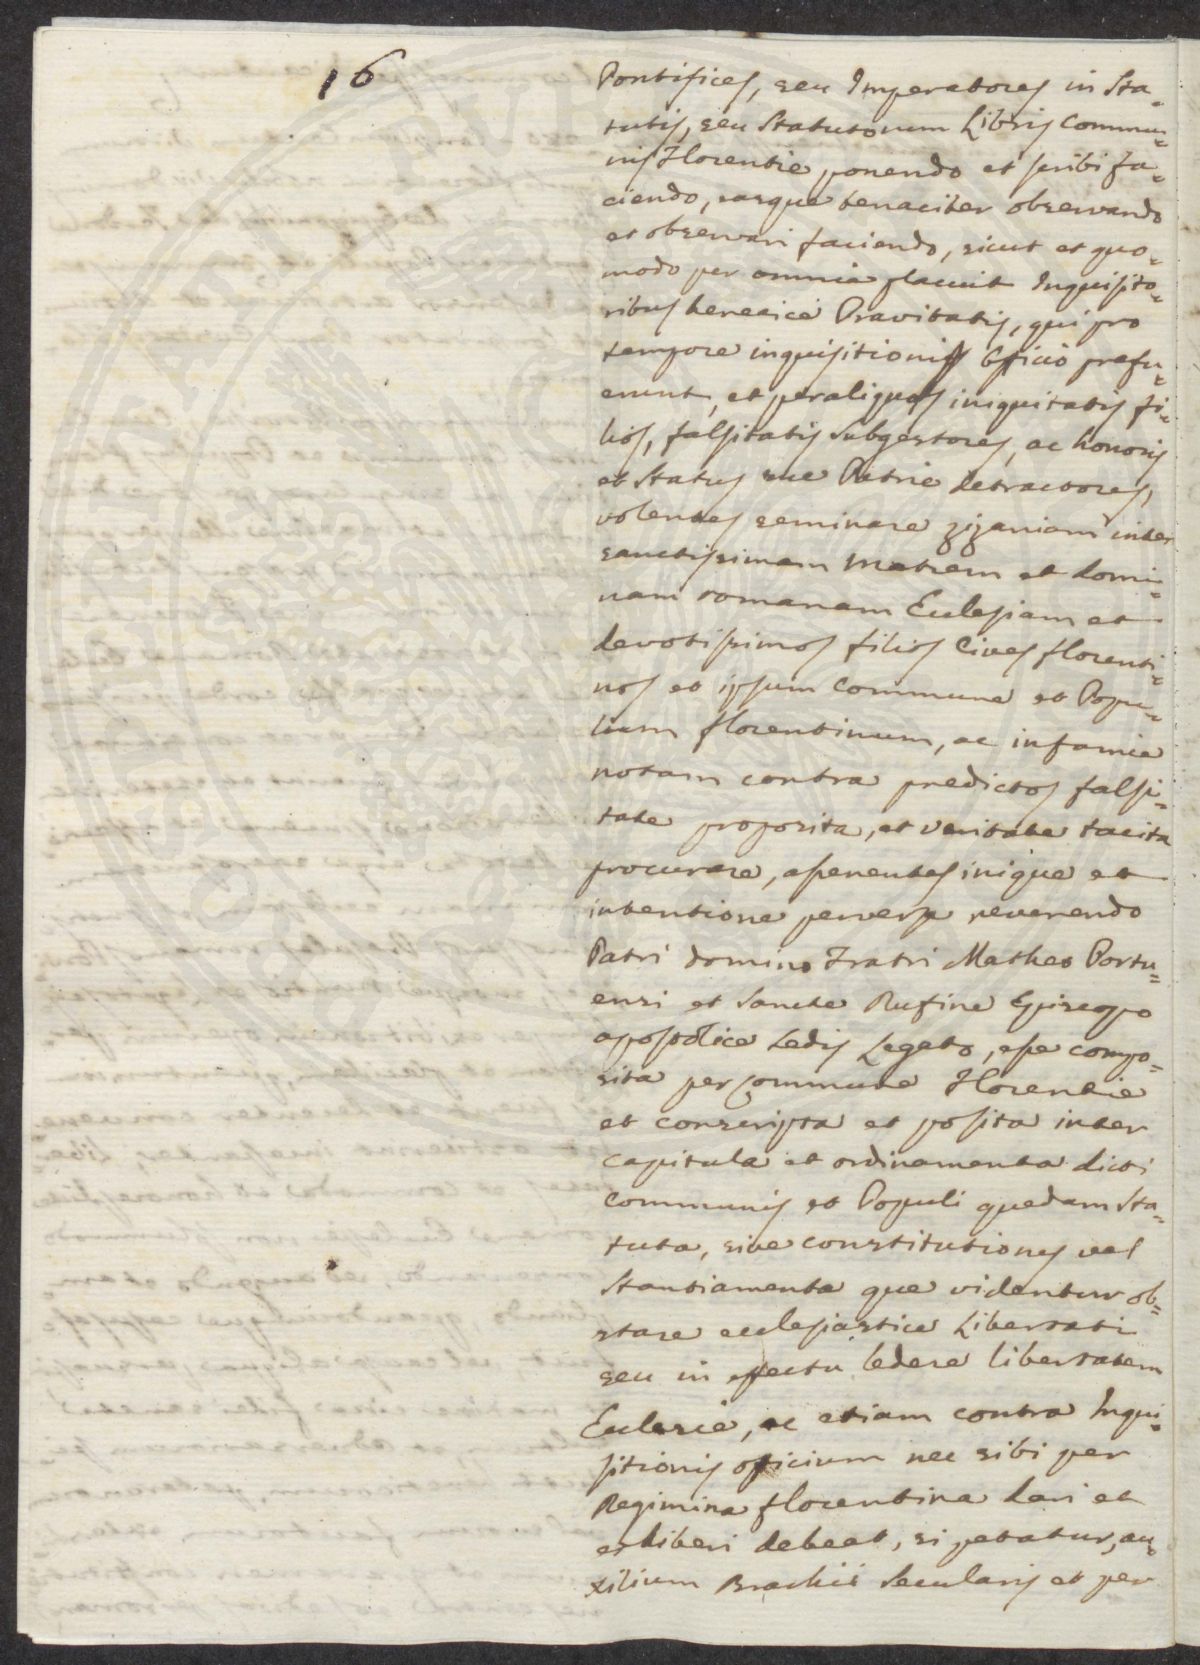 16
Pontifices, seu Imperatores in Sta=
tutis, seu Statutorum Libris Commu=
nis Florentie ponendo et scribi fa=
ciendo, easque tenaciter observando
et observari faciendo, sicut et quo=
modo per omnia placuit Inquisito=
ribus heretice Pravitatis, qui pro
tempore inquisitionis officio prefu=
erunt, et per aliquos iniquitatis fi=
lios, falsitatis subgestores, ac honoris
et Status sue Patrie detractores,
volentes seminare zizaniam inter
sanctissimam Matrem et Domi=
nam romanam Eclesiam et
devotissimos filios Cives florenti=
nos et ipsum Commune et Popu=
lum florentinum, ac infamie
notam contra predictos falsi=
tate proposita, et veritate tacita
procurare, asserentes inique et
intentione perversa reverendo
Patri domino Fratri Matheo Portu=
ensi et Sancte Rufine Episcopo
apostolice Sedis Legato, esse compo=
sita per Commune Florentie
et conscripta et posita inter
capitula et ordinamenta dicti
Communis et Populi quedam Sta=
tuta, sive constitutiones vel
Stantiamenta que videntur ob=
stare ecclesiastice Libertati
seu in effectu ledere libertatem
Eclesie, ac etiam contra Inqui=
sitionis officium nec sibi per
Regimina florentina dari et
exhiberi debeat, si petatur, au=
xilium Brachii Secularis et per